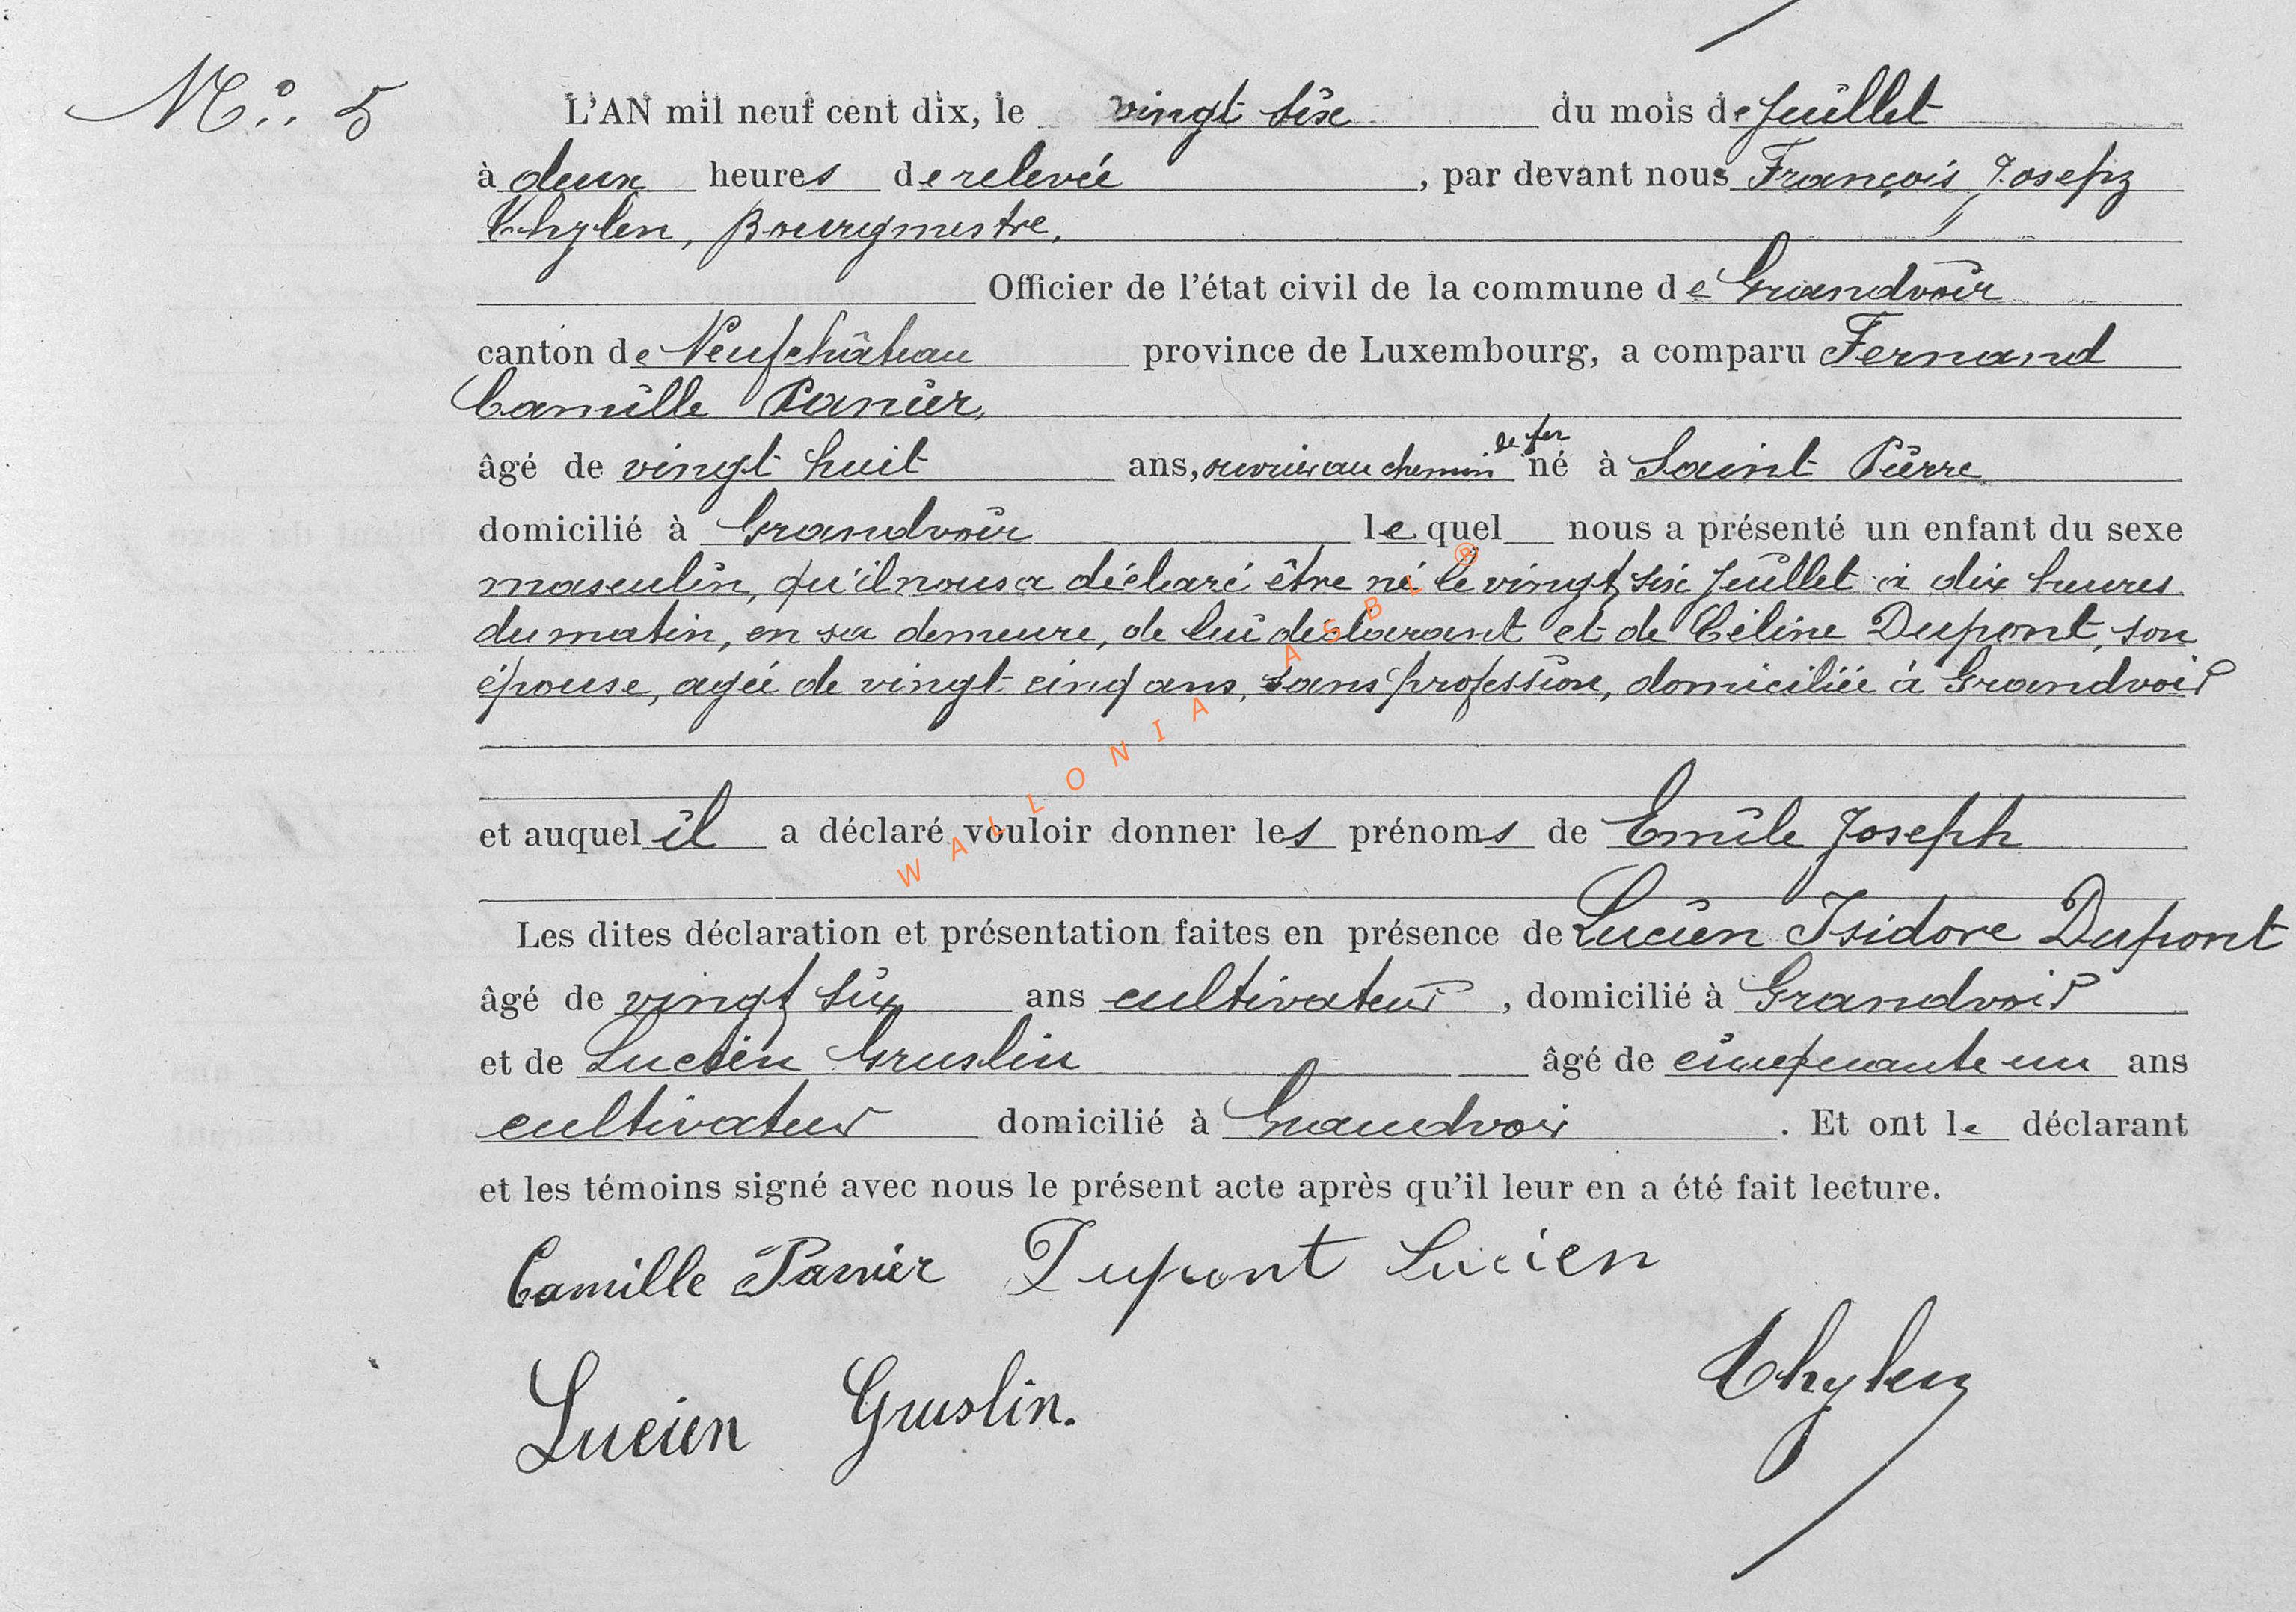 N°. 5
L'AN mil neuf cent dix, le vingt six du mois de Juillet
à deux heures de relevée , par devant nous François Joseph
Thylen, Bourgmestre,
Officier de l'état civil de la commune de Grandvoir
canton de Neufchâteau province de Luxembourg, a comparu Fernand
Camille Panier,
âgé de vingt huit ans, ouvrier au chemin de fer né à Saint Pierre
domicilié à Grandvoir lequel nous a présenté un enfant du sexe
masculin, qu'il nous a déclaré être né le vingt six Juillet à dix heures
du matin, en sa demeure, de lui déclarant et de Céline Dupont, son
épouse, agée de vingt cinq ans, sans profession, domiciliée à Grandvoir
et auquel il a déclaré vouloir donner les prénoms de Emile Joseph
Les dites déclaration et présentation faites en présence de Lucien Isidore Dupont
âgé de vingt six ans cultivateur , domicilié à Grandvoir
et de Lucien Gruslin âgé de cinquante un ans
cultivateur domicilié à Grandvoir . Et ont le déclarant
et les témoins signé avec nous le présent acte après qu'il leur en a été fait lecture.
Camille Panier Dupont Lucien
Thylen
Lucien Gruslin.
WALLONIA ASBL ®